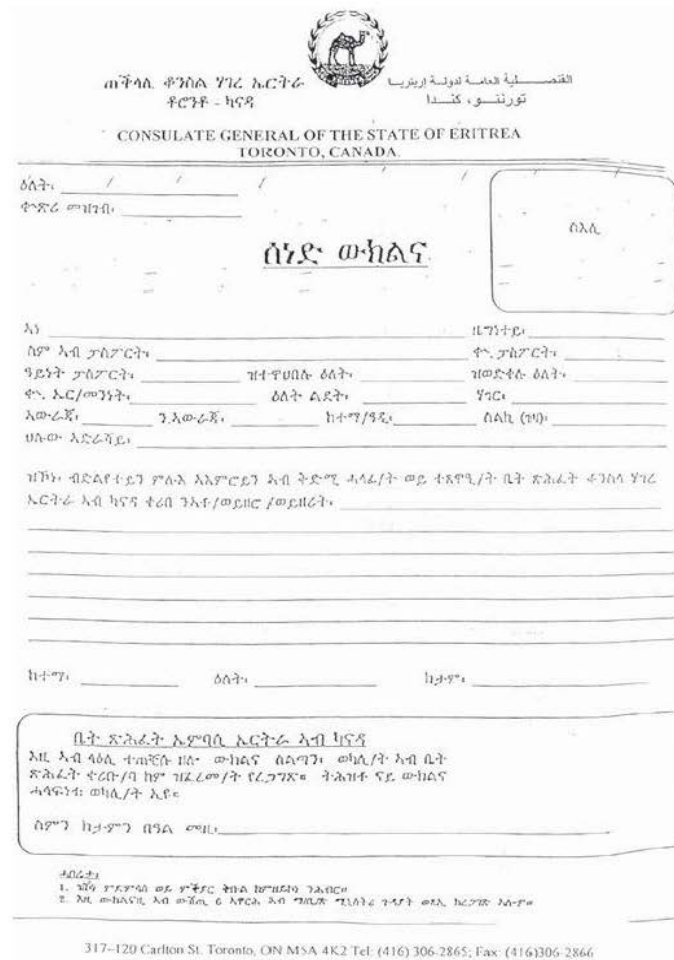 ጠቕላሊ ቆንስል ሃገረ ኤርትራ
ቶሮንቶ - ካናዳ
القنصلية العامة لدولة إريتريا
تورنتو، كندا
CONSULATE GENERAL OF THE STATE OF ERITREA
TORONTO, CANADA.
ዕለት፡ / / /
ቍጽሪ መዝገብ፡
ስእሊ
ሰነድ ውክልና
ኣነ ዜግነተይ፡
ስም ኣብ ፓስፖርት፡ ቍ. ፓስፖርት፡
ዓይነት ፓስፖርት፡ ዝተዋህበሉ ዕለት፡ ዝወድቀሉ ዕለት፡
ቍ. ኤር/መንነት፡ ዕለት ልደት፡ ሃገር፡
ኣውራጃ፡ ን.ኣውራጃ፡ ከተማ/ዓዲ፡ ስልኪ (ገዛ)፡
ህሉው ኣድራሻይ፡
ዝኾነ፡ ብድልየተይን ምሉእ ኣእምሮይን ኣብ ቅድሚ ሓላፊ/ት ወይ ተጸዋዒ/ት ቤት ጽሕፈት ቆንስል ሃገረ
ኤርትራ ኣብ ካናዳ ቀሪበ ንኣቶ/ወይዘሮ /ወይዘሪት፡
ከተማ፡ ዕለት፡ ክታም፡
ቤት ጽሕፈት ኤምባሲ ኤርትራ ኣብ ካናዳ
እዚ ኣብ ላዕሊ ተጠቒሱ ዘሎ ውክልና ስልጣን፡ ወካሊ/ት ኣብ ቤት
ጽሕፈት ቀሪቡ/ባ ከም ዝፈረመ/ት የረጋግጽ። ትሕዝቶ ናይ ውክልና
ሓላፍነቱ ወካሊ/ት ኢዩ።
ስምን ክታምን በዓል መዚ፡
ሓበሬታ፡
1. ምድምሳስ ወይ ምቕያር ቅቡል ከምዘይኮነ ንሕብር።
2. እዚ ውክልናዚ ኣብ ውሽጢ 6 ኣዋርሕ ኣብ ሚኒስትሪ ጉዳያት ወጻኢ ክረጋገጽ ኣለዎ።
317-120 Carlton St. Toronto, ON M5A 4K2 Tel: (416) 306-2865; Fax: (416)306-2866